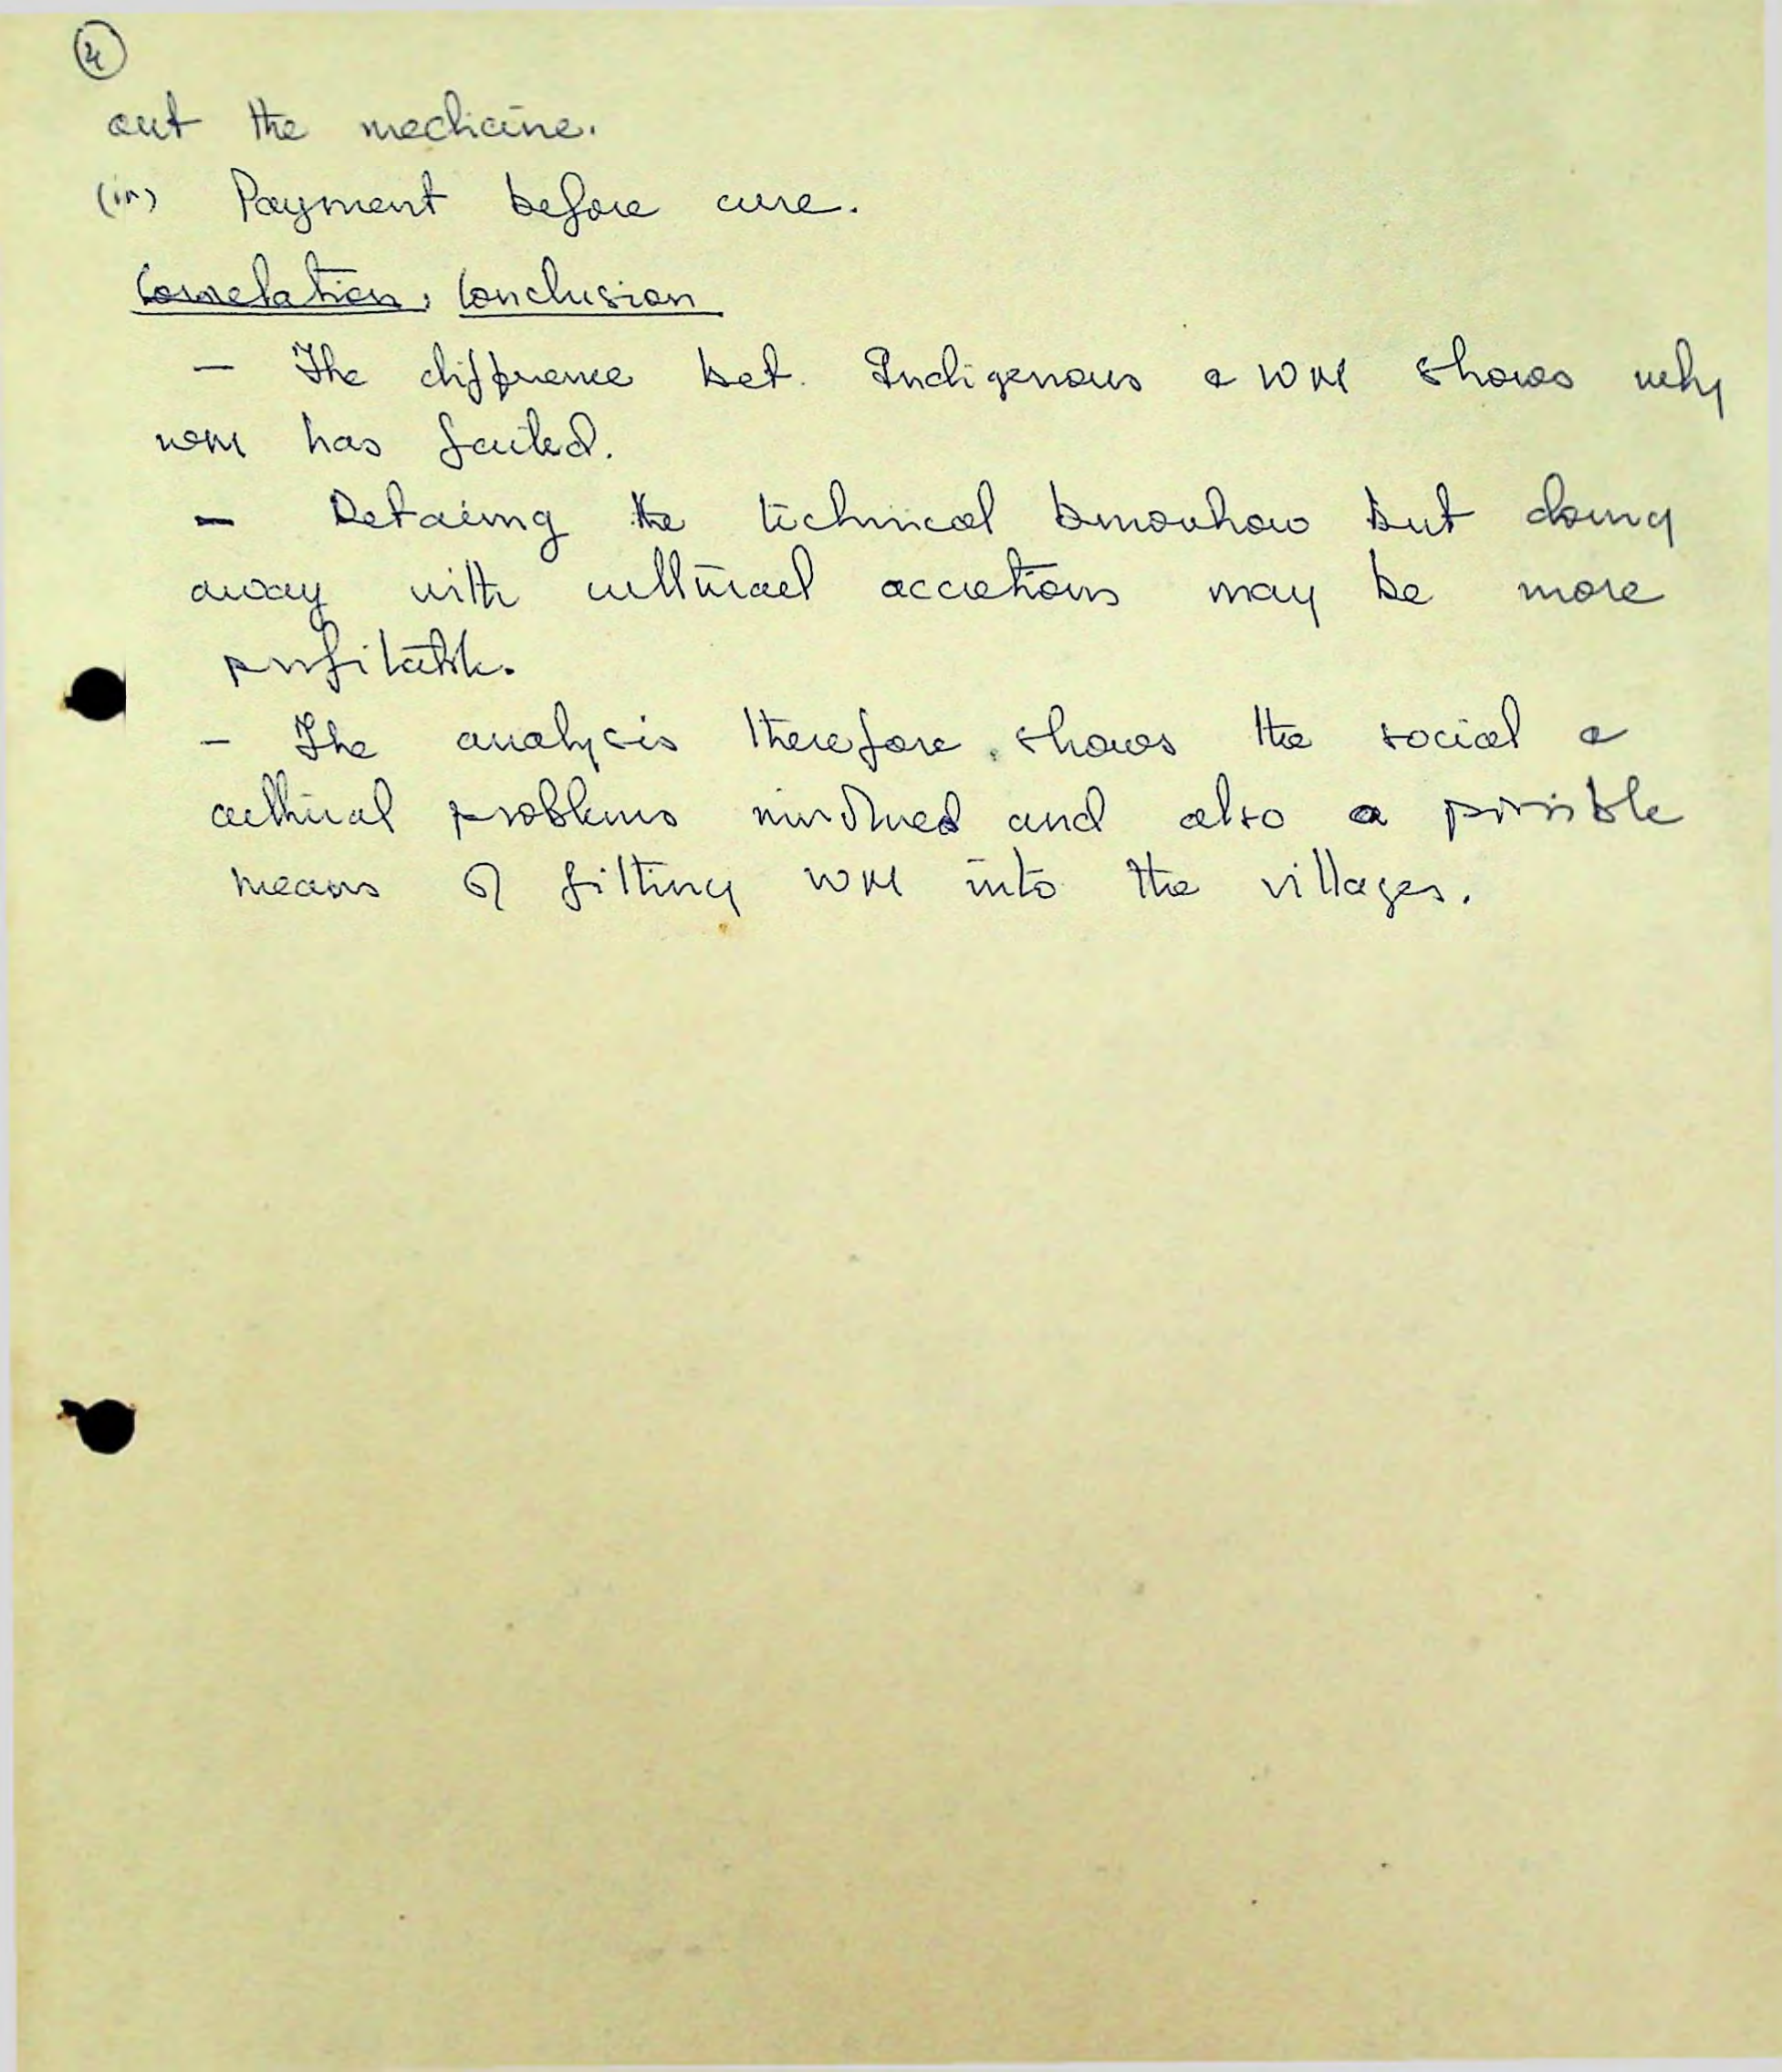 4
out the medicine.
(iv) Payment before cure.
Correlation, Conclusion
- The difference bet. Indigenous & WM shows why
WM has failed.
- Retaining the technical knowhow but doing
away with cultural accretions may be more
profitable.
- The analysis therefore shows the social &
cultural problems involved and also a possible
means of fitting WM into the villages.